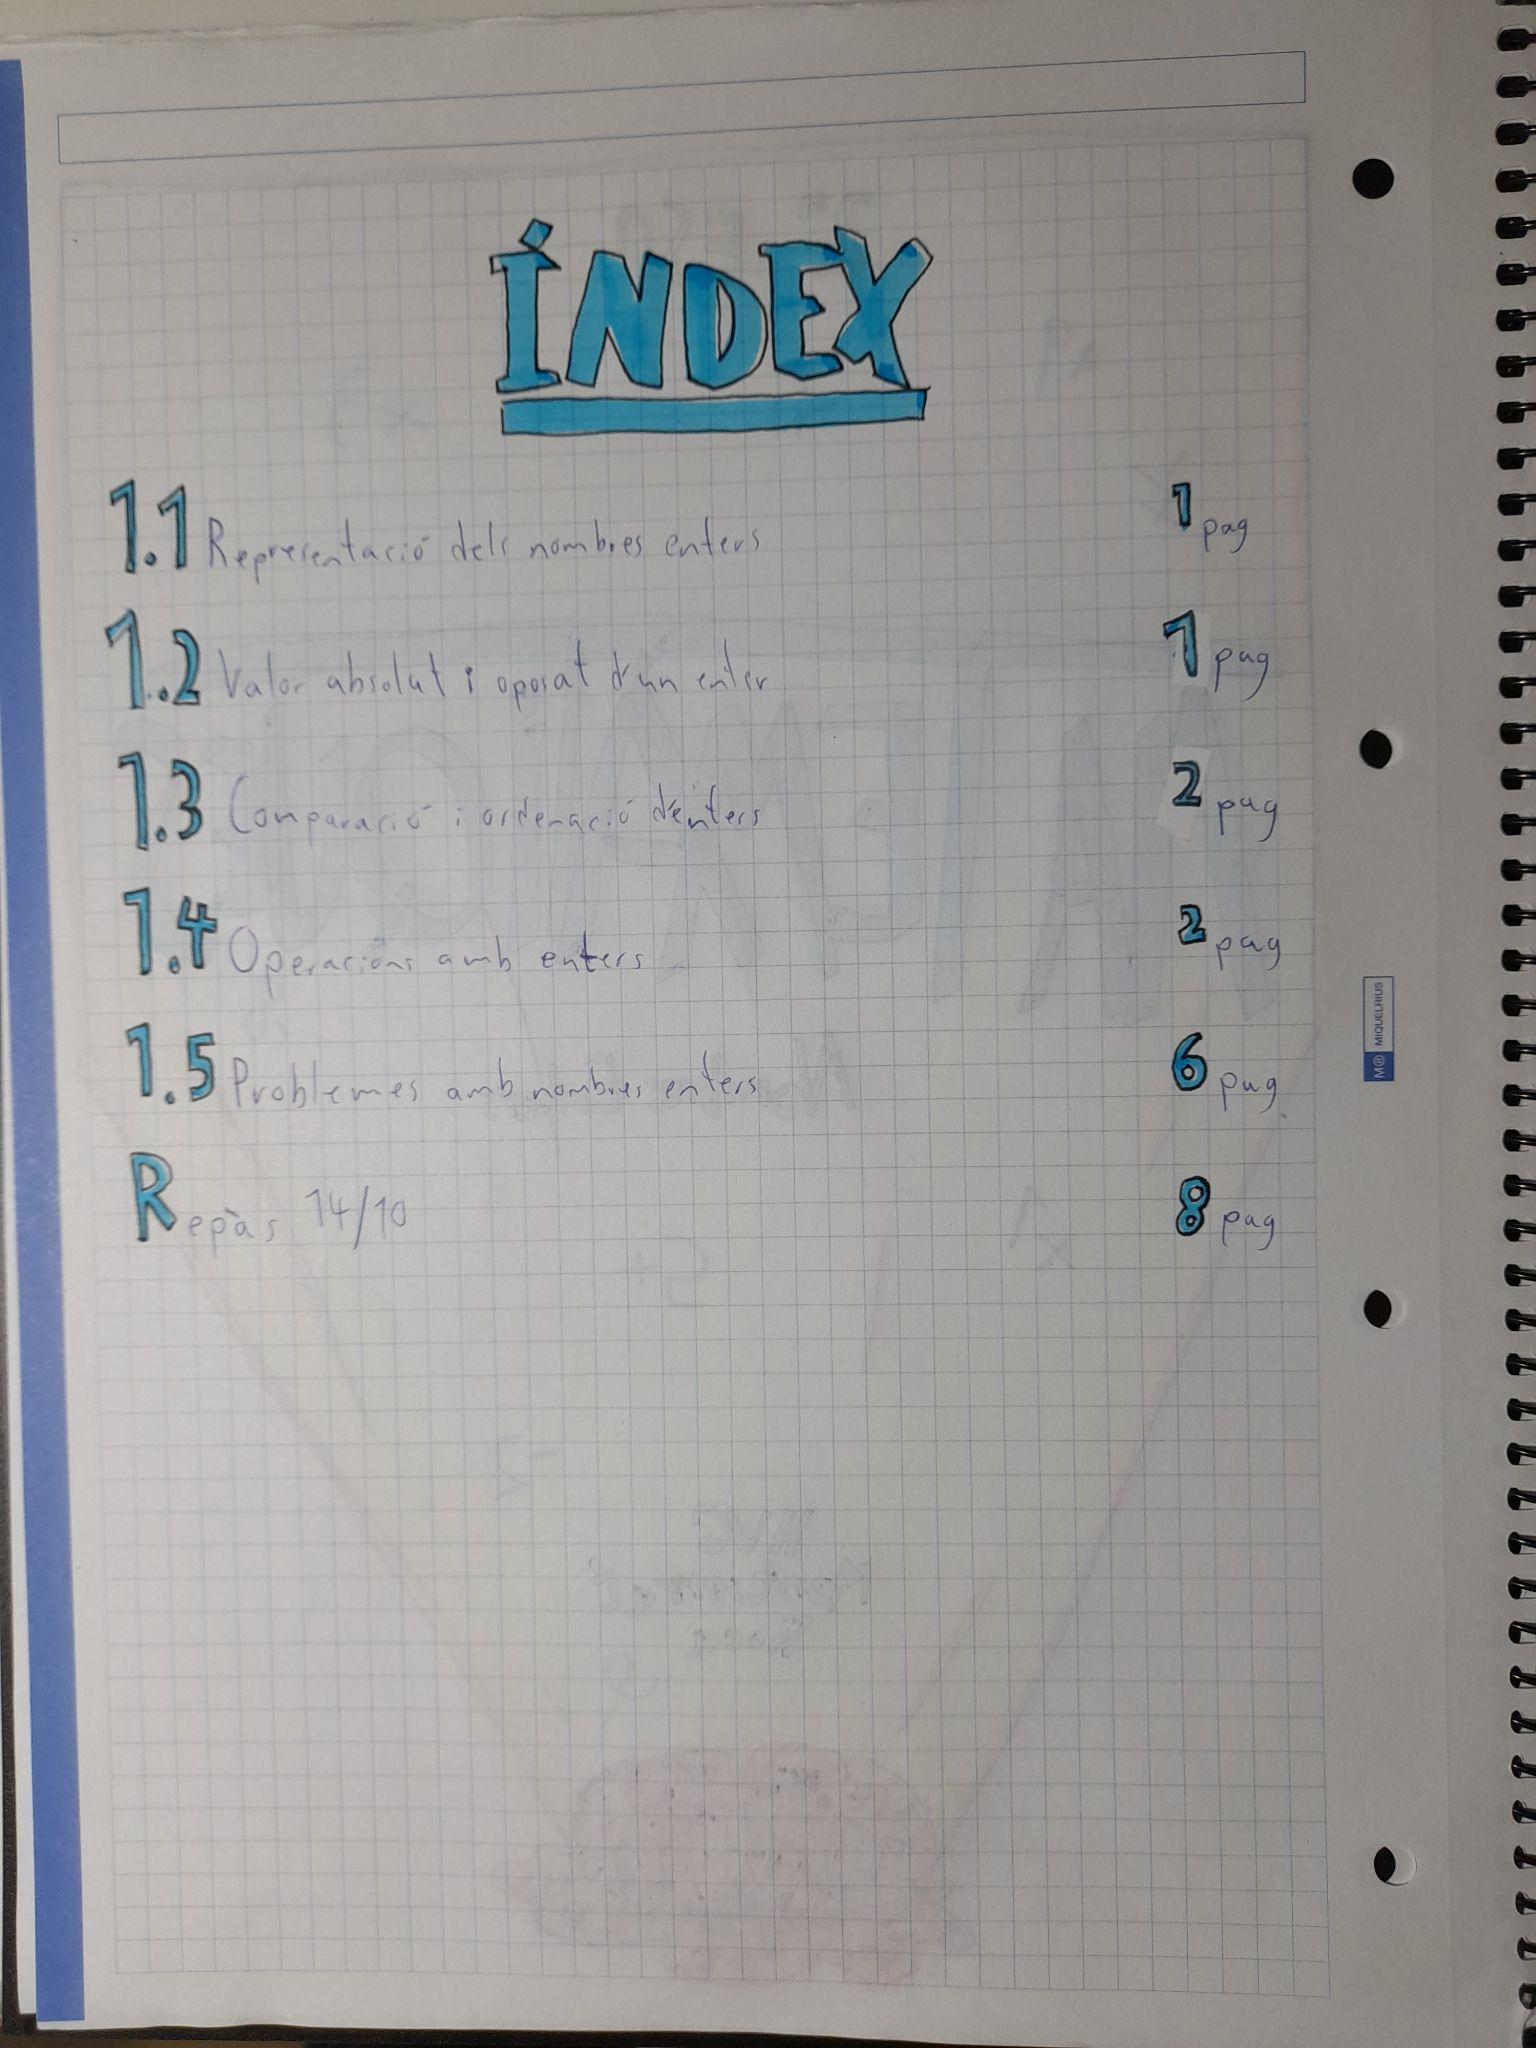 ÍNDEX
1.1 Representació dels nombres enters 1 pag
1.2 Valor absolut i oposat d'un enter 1 pag
1.3 Comparació i ordenació d'enters 2 pag
1.4 Operacions amb enters 2 pag
1.5 Problemes amb nombres enters 6 pag
Repàs 14/10 8 pag
MIQUELRIUS